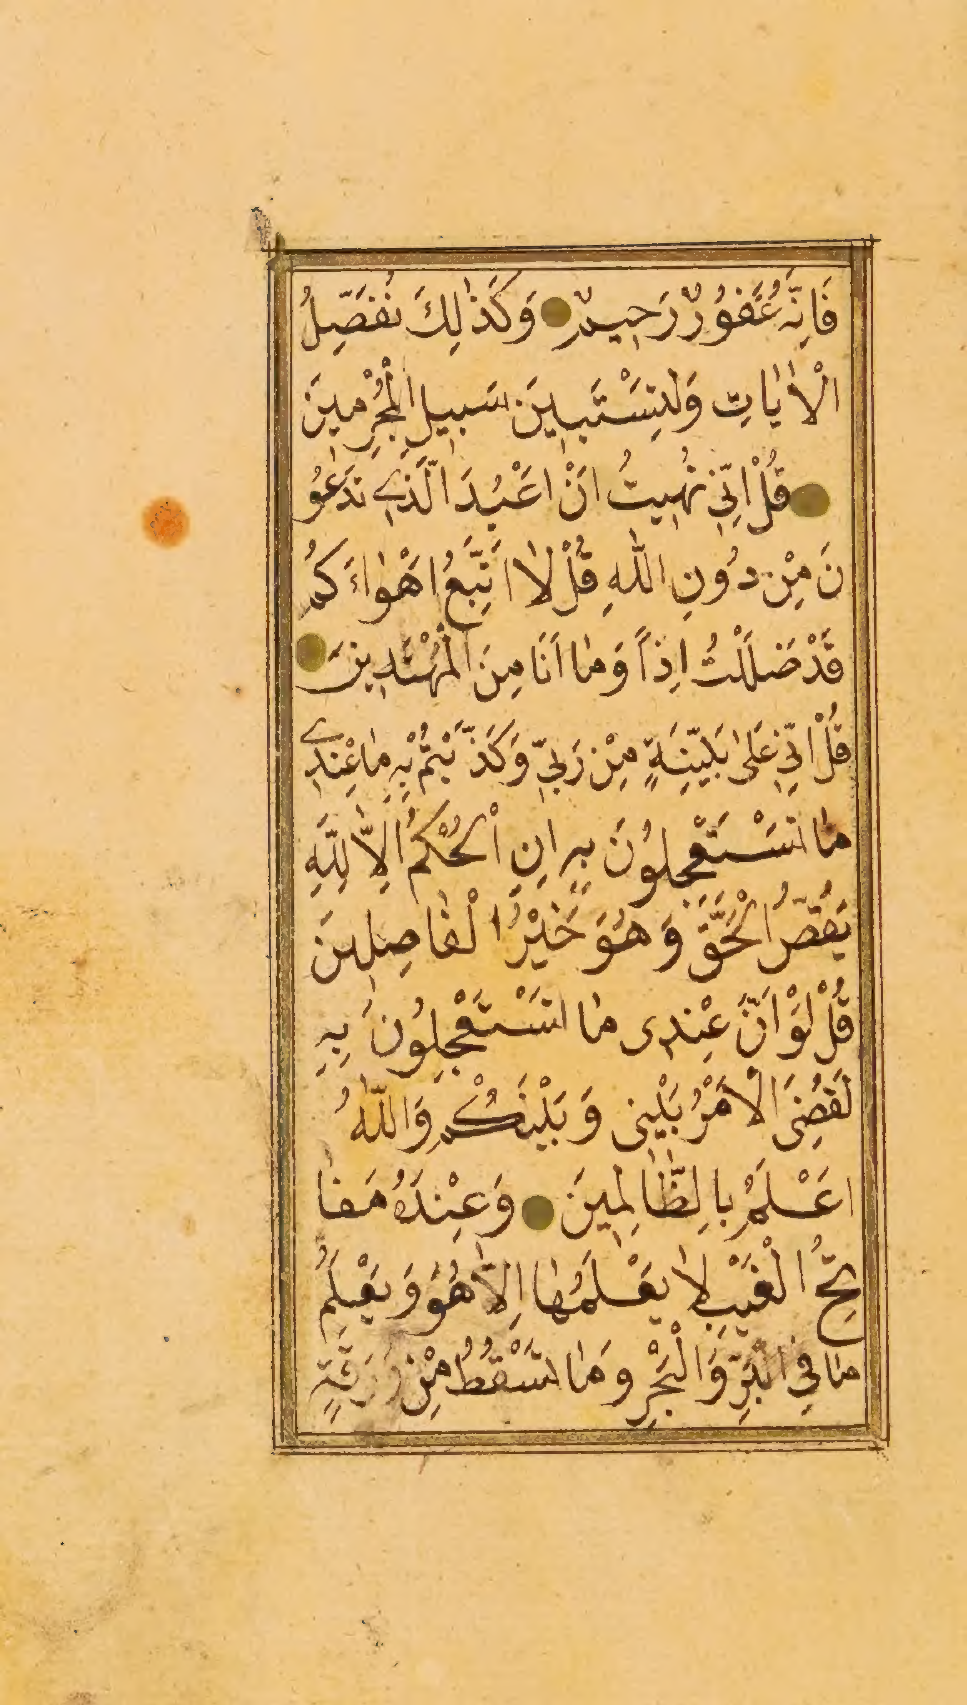 فَاِنَّهُ غَفُورٌ رَحِيمٌ وَكَذٰلِكَ نُفَصِّلُ
الْاٰيَاتِ وَلِتَسْتَبِينَ سَبِيلِ الْمُجْرِمِينَ
قُلْ اِنِّي نُهِيتُ اَنْ اَعْبُدَ الَّذِي نَدْعُو
نَ مِنْ دُونِ اللّٰهِ قُلْ لَا اَتَّبِعُ اَهْوَاءَكُمْ
قَدْ ضَلَلْتُ اِذاً وَمَا اَنَا مِنَ الْمُهْتَدِينَ
قُلْ اِنِّي عَلٰى بَيِّنَةٍ مِنْ رَبِّي وَكَذَّبْتُمْ بِهِ مَا عِنْدِي
مَا تَسْتَعْجِلُونَ بِهِ اِنِ الْحُكْمُ اِلَّا لِلّٰهِ
يَقُصُّ الْحَقَّ وَهُوَ خَيْرُ الْفَاصِلِينَ
قُلْ لَوْ اَنَّ عِنْدِى مَا تَسْتَعْجِلُونَ بِهِ
لَقُضِىَ الْاَمْرُ بَيْنِى وَبَيْنَكُمْ وَاللّٰهُ
اَعْلَمُ بِالظَّالِمِينَ وَعِنْدَهُ مَفَا
تِحُ الْغَيْبِ لَا يَعْلَمُهَا اِلَّا هُوَ وَيَعْلَمُ
مَا فِي الْبَرِّ وَالْبَحْرِ وَمَا تَسْقُطُ مِنْ وَرَقَةٍ